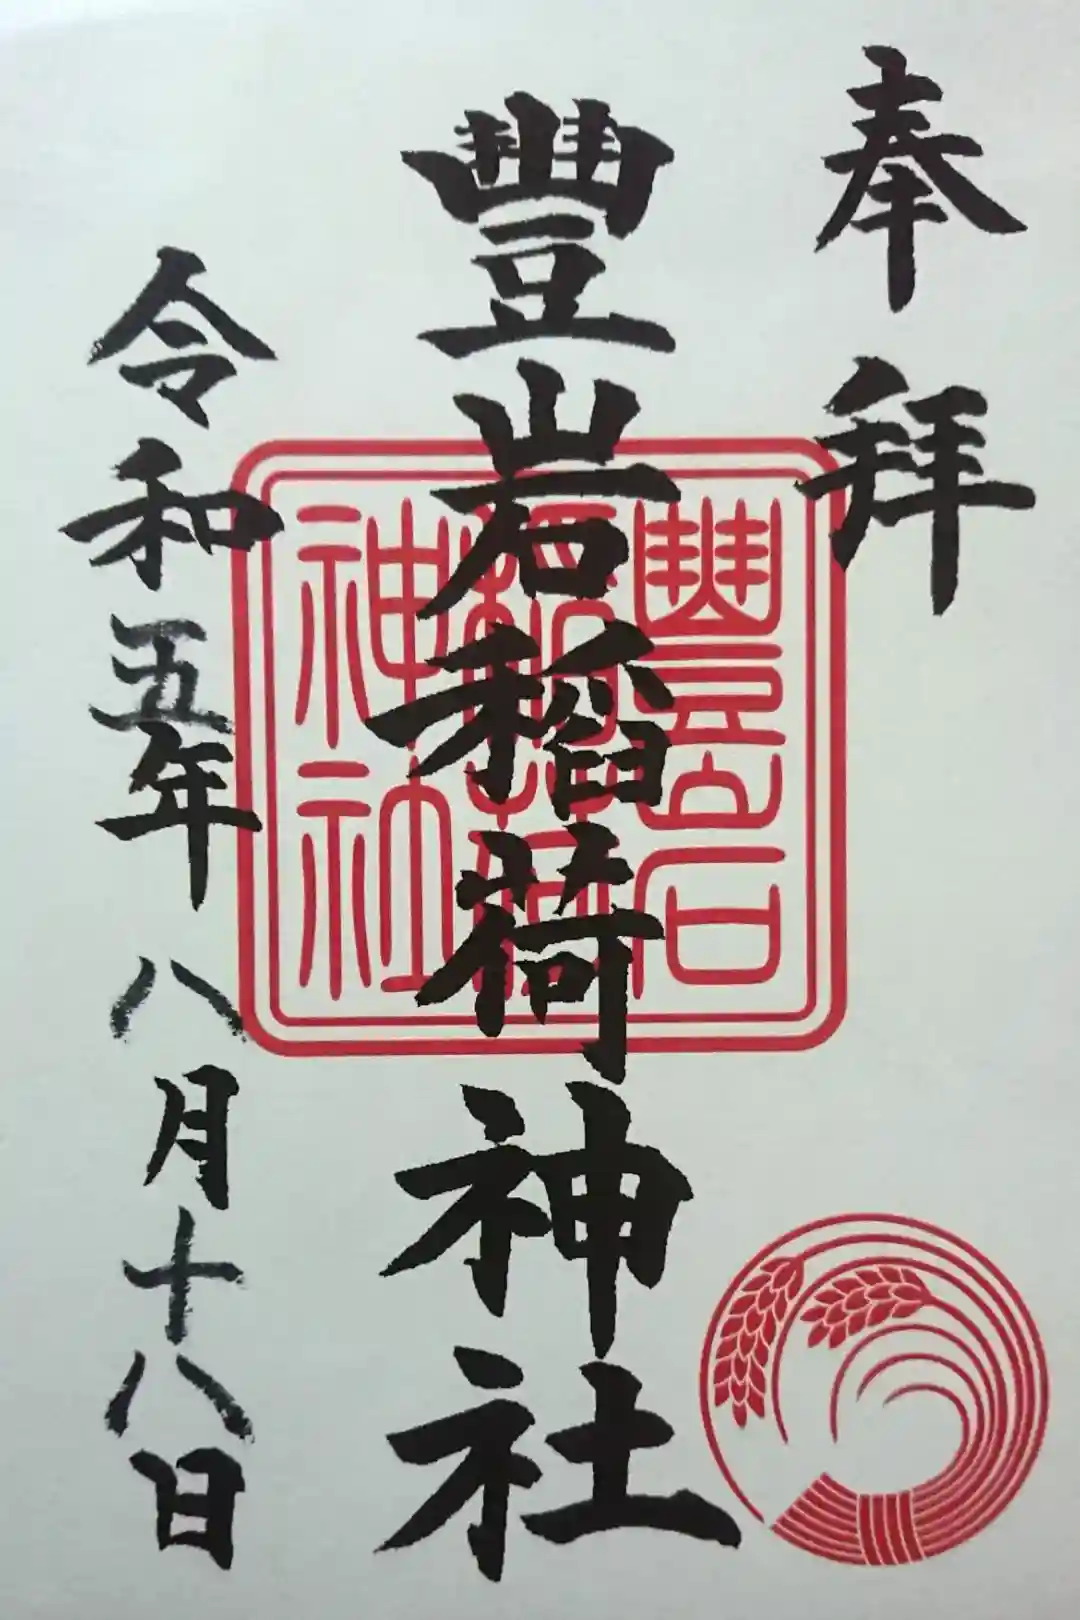 奉拝
豐岩稻荷神社
豐岩稻荷神社
令和五年八月十八日